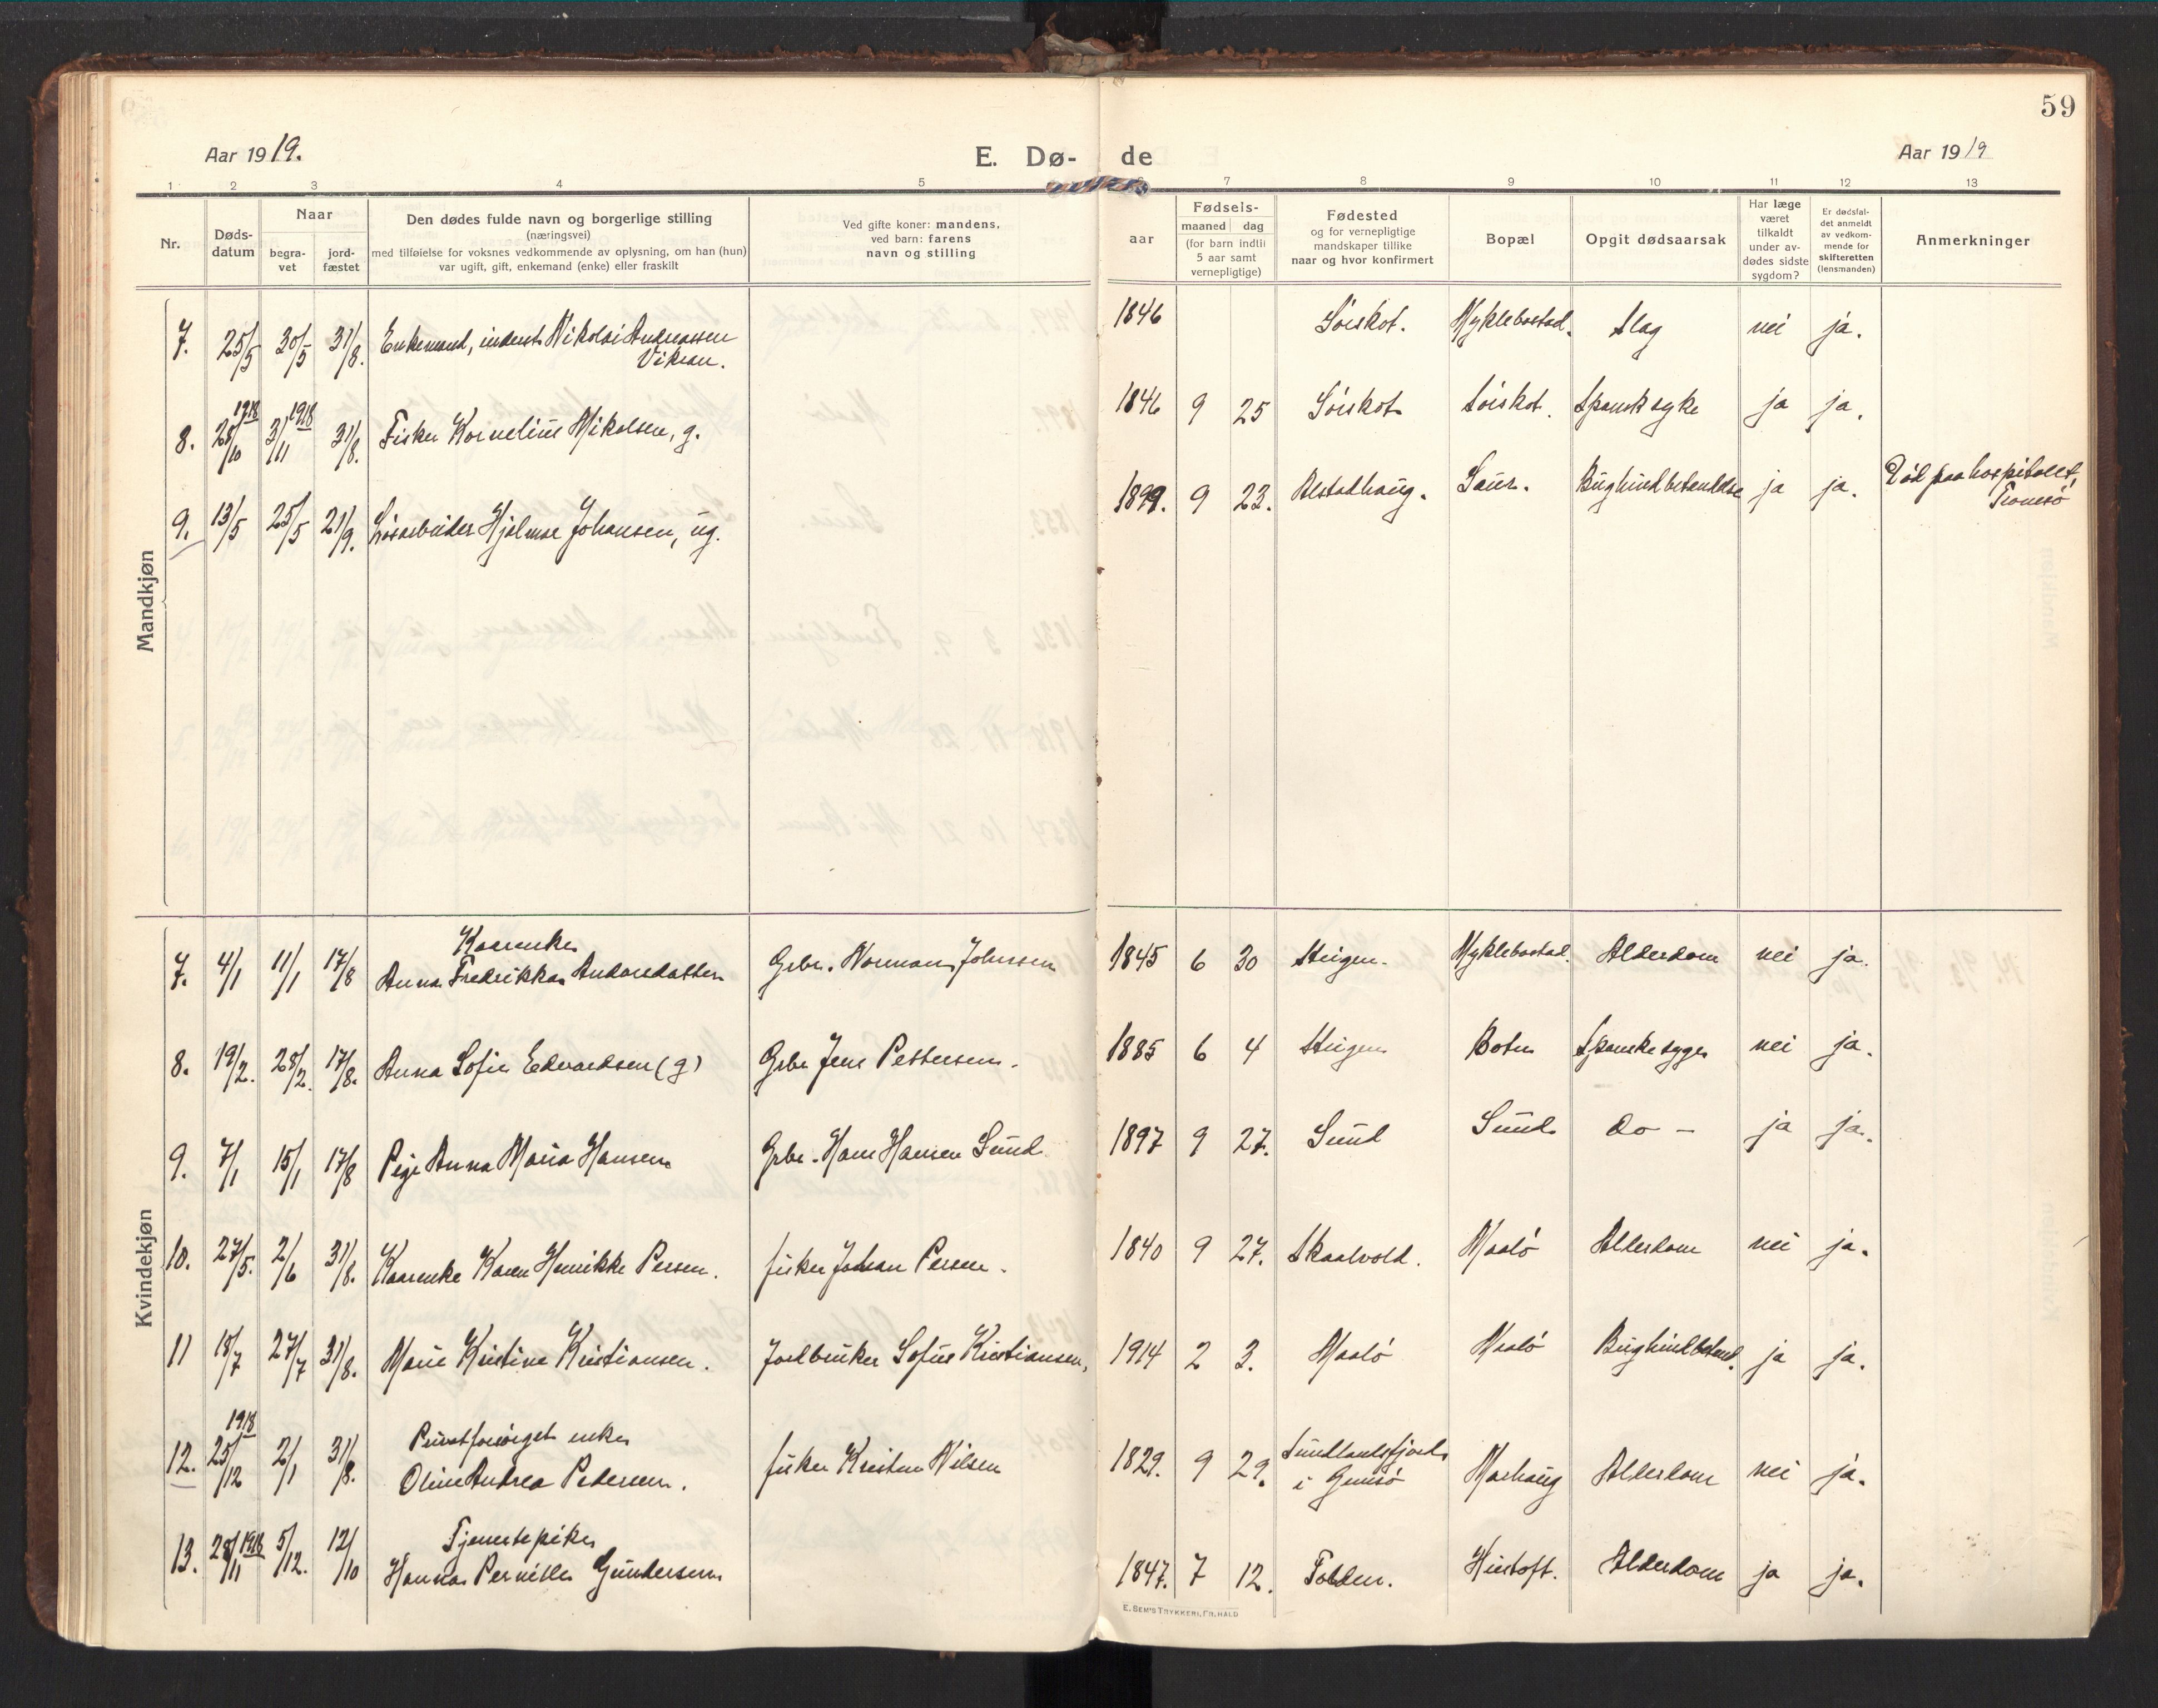 59
Aar 1919.
E. Dø- de
Aar 1919
1 2 3 4 5 7 8 9 10 11 12 13
Nr.
Døds-
datum
Naar
begra-
vet
jord-
fæstet
Den dødes fulde navn og borgerlige stilling
(næringsvei)
med tilføielse for voksnes vedkommende av oplysning, om han (hun)
var ugift, gift, enkemand (enke) eller fraskilt
Ved gifte koner: mandens,
ved barn: farens
navn og stilling
aar
Fødsels-
maaned dag
(for barn indtil
5 aar samt
vernepligtige)
Fødested
og for vernepligtige
mandskaper tillike
naar og hvor konfirmert
Bopæl
Opgit dødsaarsak
Har læge
været
tilkaldt
under av-
dødes sidste
sygdom?
Er dødsfal-
det anmeldt
av vedkom-
mende for
skifteretten
(lensmanden)
Anmerkninger
Mandkjøn
7. 25/5 30/5 31/8. Enkemand, inderst Nikolai Andreassen 1846 Sørskot. Myklebostad. Slag nei ja.
Vikran.
1918 1918
8. 28/10 3/11 31/8. Fisker Kornelius Mikalsen, g. 1846 9 25 Sørskot Sørskot. Spansk syke ja ja.
9. 13/5 25/5 21/9. Løsarbeider Hjalmar Johansen, ug. 1899. 9 23. Alstadhaug. Saur. Bughindbetændelse ja ja. Död paa hospitalet,
Tromsö
Kvindekjøn
Kaarenke
7. 4/1 11/1 17/8 Anna Fredrikka Andorsdatter Grbr. Normann Johnsen 1845 6 30 Steigen. Myklebostad. Alderdom nei ja.
8. 19/2. 28/2. 17/8. Anna Sofie Edvardsen (g) Grbr Jens Pettersen. 1885 6 4 Steigen Botn Spanske syge nei ja.
9. 7/1 15/1 17/8 Pige Anna Maria Hansen Grbr. Hans Hansen Sund 1897 9 27. Sund Sund do - ja ja.
10. 27/5. 2/6 31/8. Kaarenke Karen Henrikke Persen. fisker Johan Persen. 1840 9 27. Skaalvold. Maalö Alderdom nei ja.
11 18/7 27/7 31/8. Marie Kristine Kristiansen. Jordbruker Sofus Kristiansen, 1914 2 3. Maalö Maalö Bughindbetænd. ja ja.
1918 Privatforsörget enke
12. 25/12 2/1 31/8. Oline Andrea Pedersen. fisker Kristen Nilsen 1829. 9 29. Sundlandsfjord
i Gimsö Marhaug Alderdom nei ja.
Tjenestepike
13. 28/11 1918 5/12. 12/10 Hanna Pernille Gundersen 1847. 7 12. Folden. Hustoft. Alderdom ja ja.
E. SEM'S TRYKKERI, FR.HALD